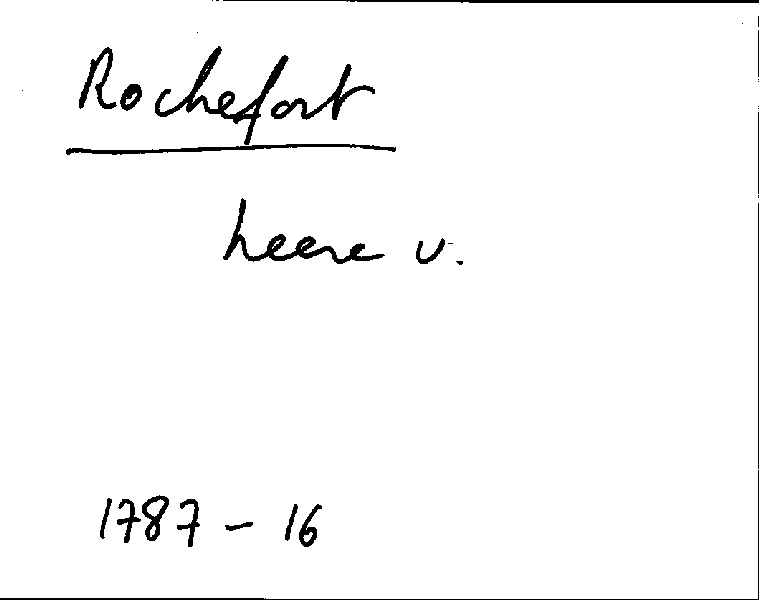 Rochefort
heere v.
1787 - 16